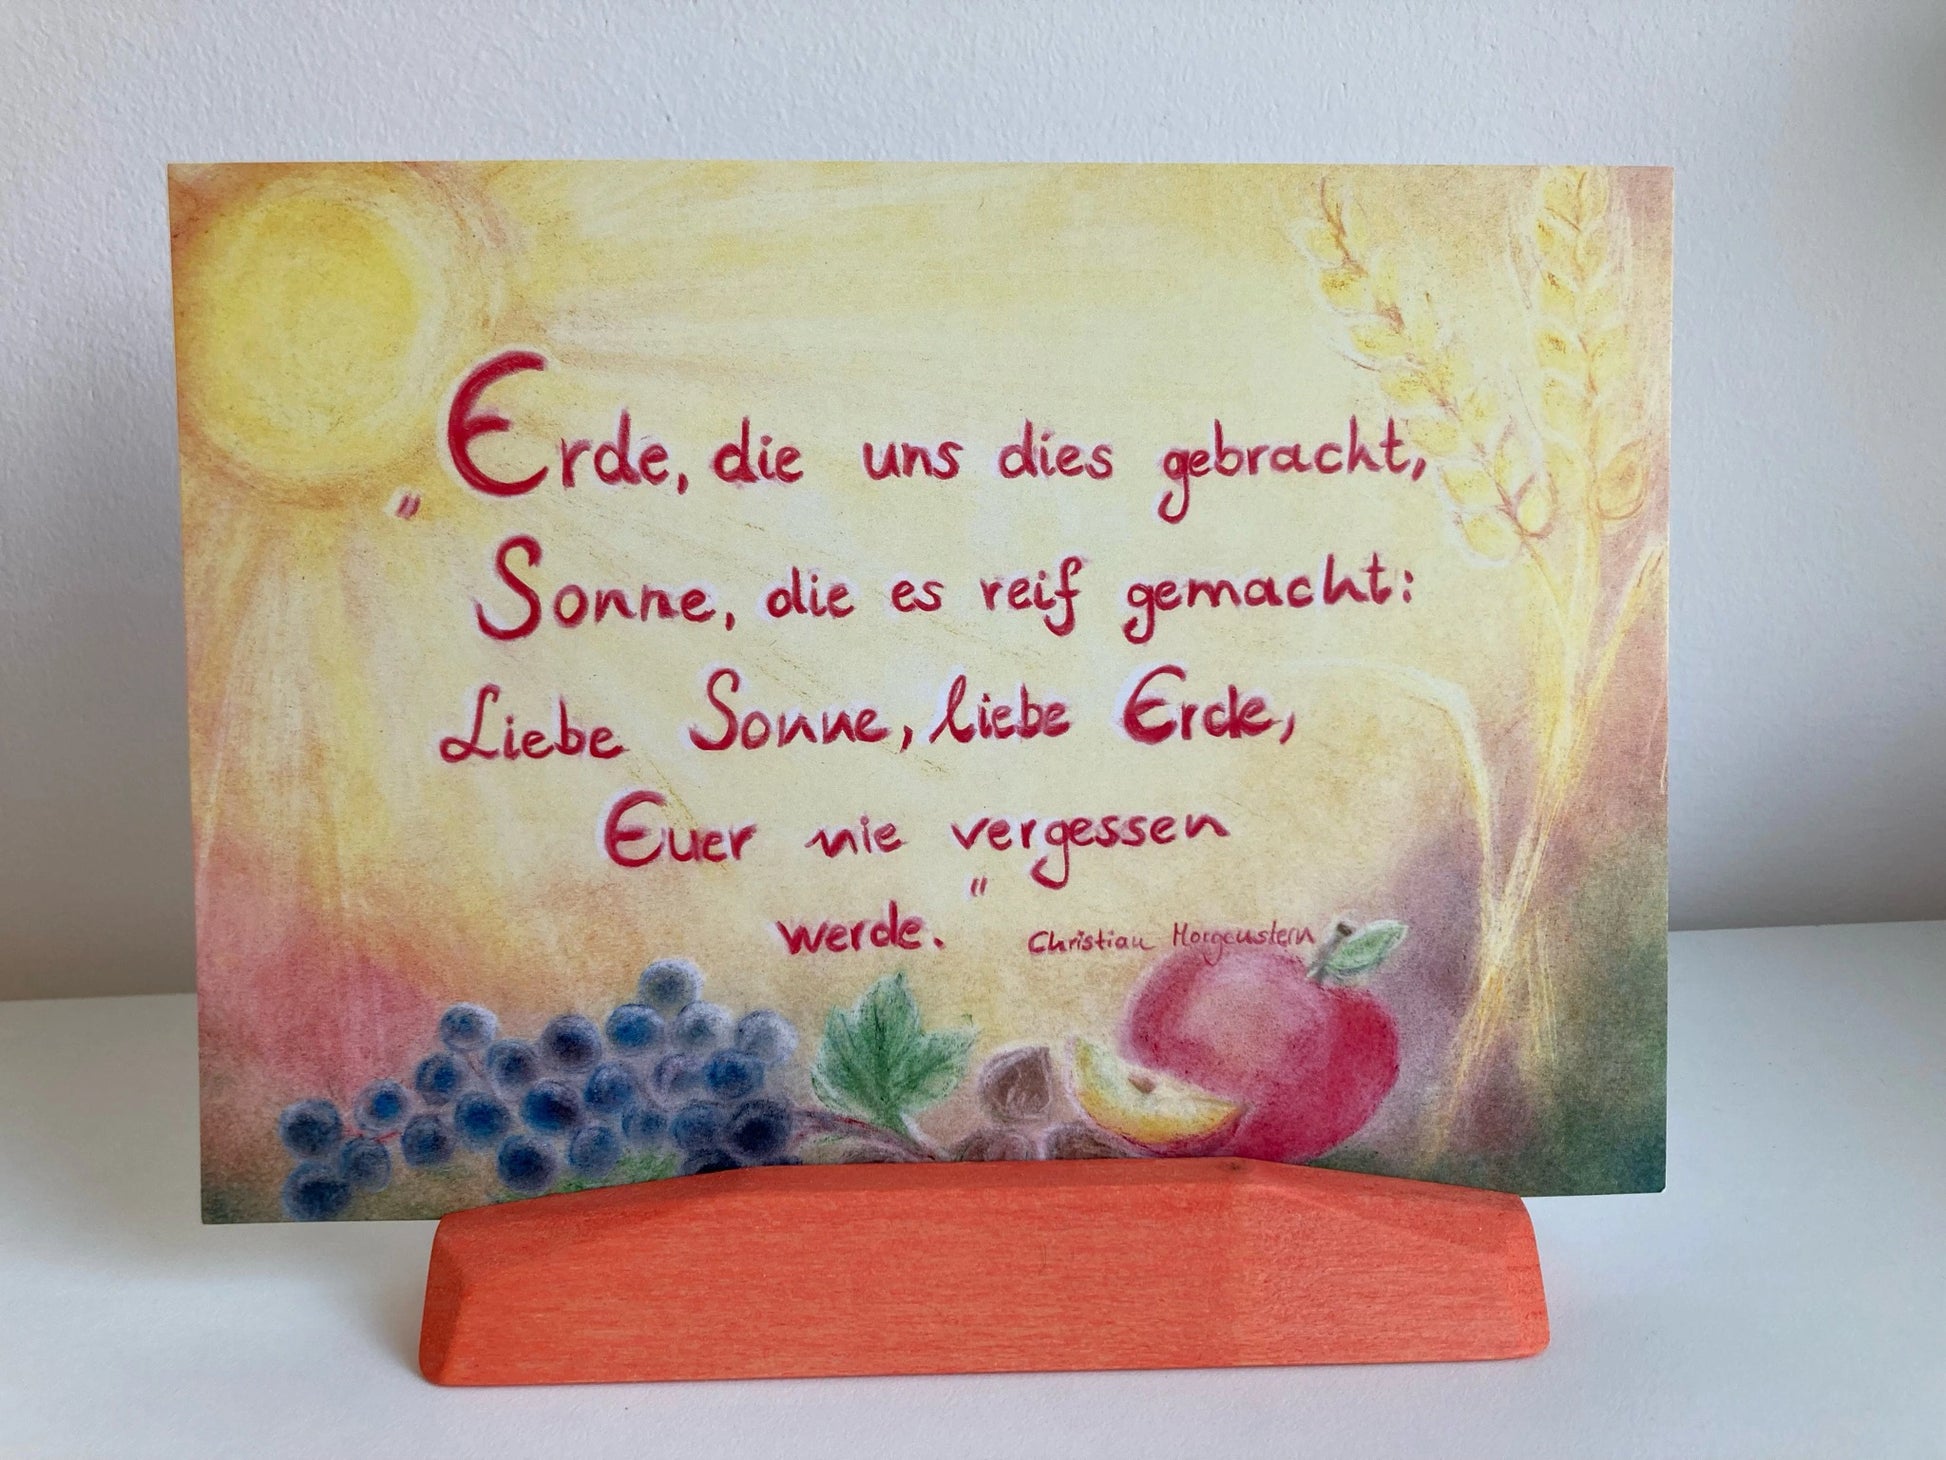 „Erde, die uns dies gebracht,
Sonne, die es reif gemacht:
Liebe Sonne, liebe Erde,
Euer nie vergessen
werde."
Christian Morgenstern